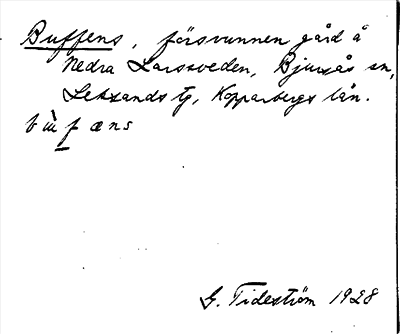 Buffens, försvunnen gård å
Nedra Larssveden, Bjursås sn,
Leksands tg, Kopparbergs län.
bu̇f æns
G. Tideström 1928